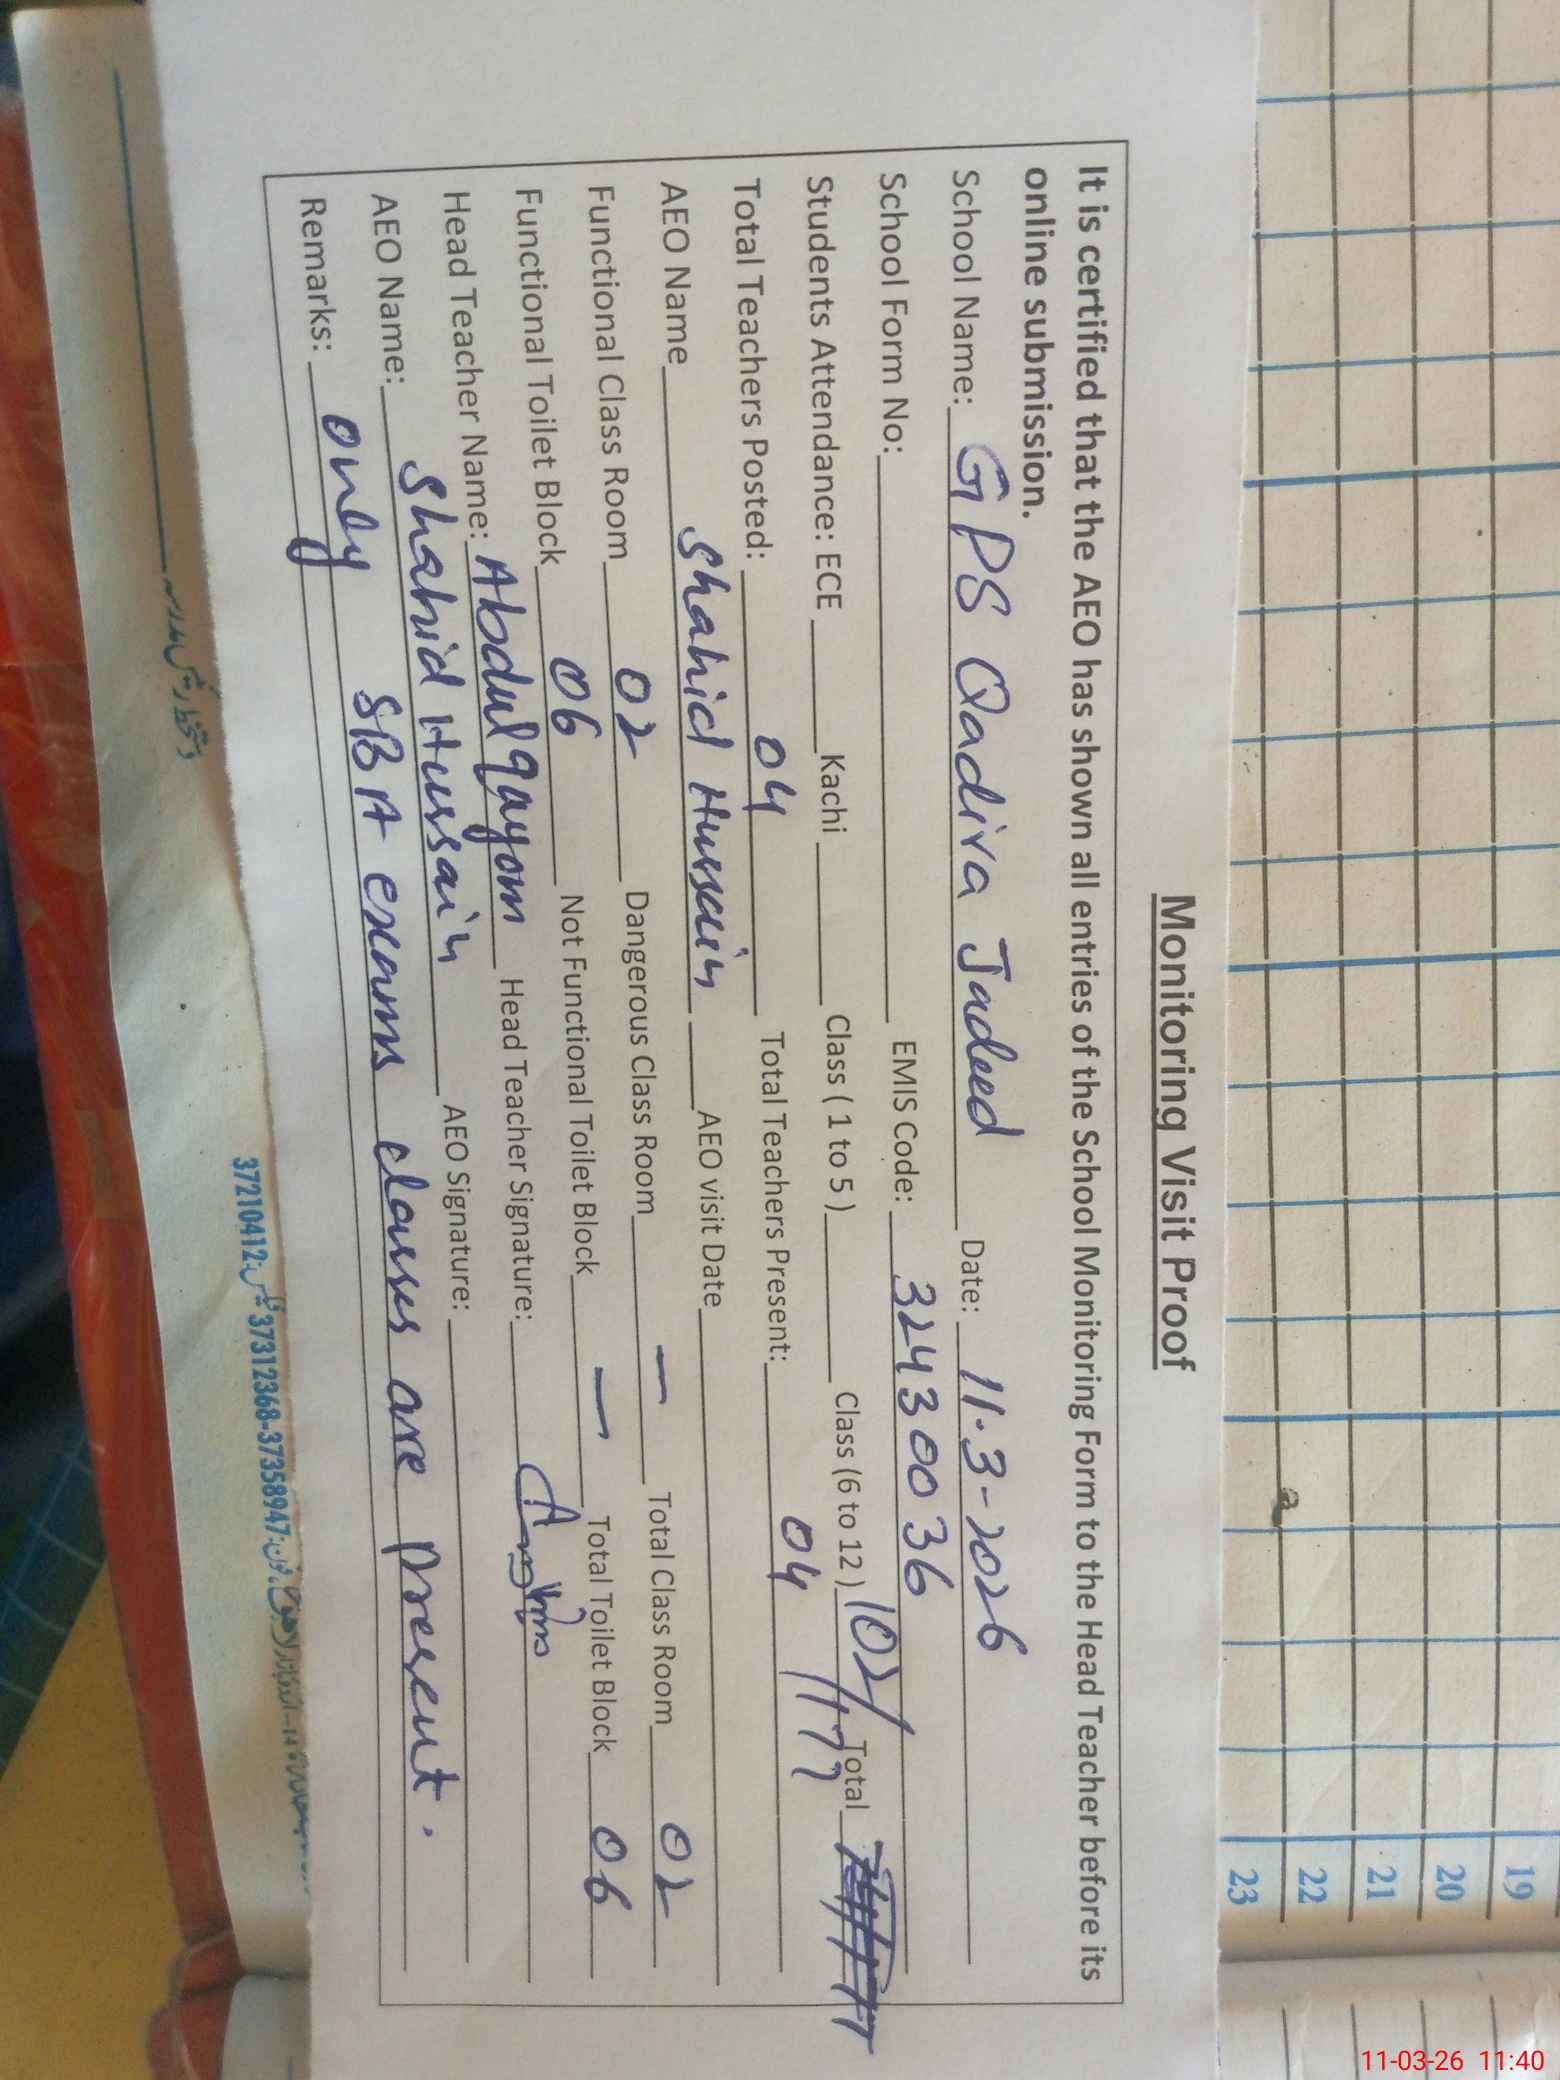 19
20
21
22
23
Monitoring Visit Proof
It is certified that the AEO has shown all entries of the School Monitoring Form to the Head Teacher before its
online submission.
School Name: GPS Qadira Jadeed Date: 11.3-2026
School Form No: EMIS Code: 32430036
Students Attendance: ECE Kachi Class ( 1 to 5 ) Class (6 to 12 ) 102/177 Total
Total Teachers Posted: 04 Total Teachers Present: 04
AEO Name Shahid Hussain AEO visit Date
Functional Class Room 02 Dangerous Class Room — Total Class Room 02
Functional Toilet Block 06 Not Functional Toilet Block — Total Toilet Block 06
Head Teacher Name: Abdul qayom Head Teacher Signature:
AEO Name: Shahid Hussain AEO Signature:
Remarks: only SBA exams classes are present.
37210412: 37312368-37358947:
11-03-26 11:40